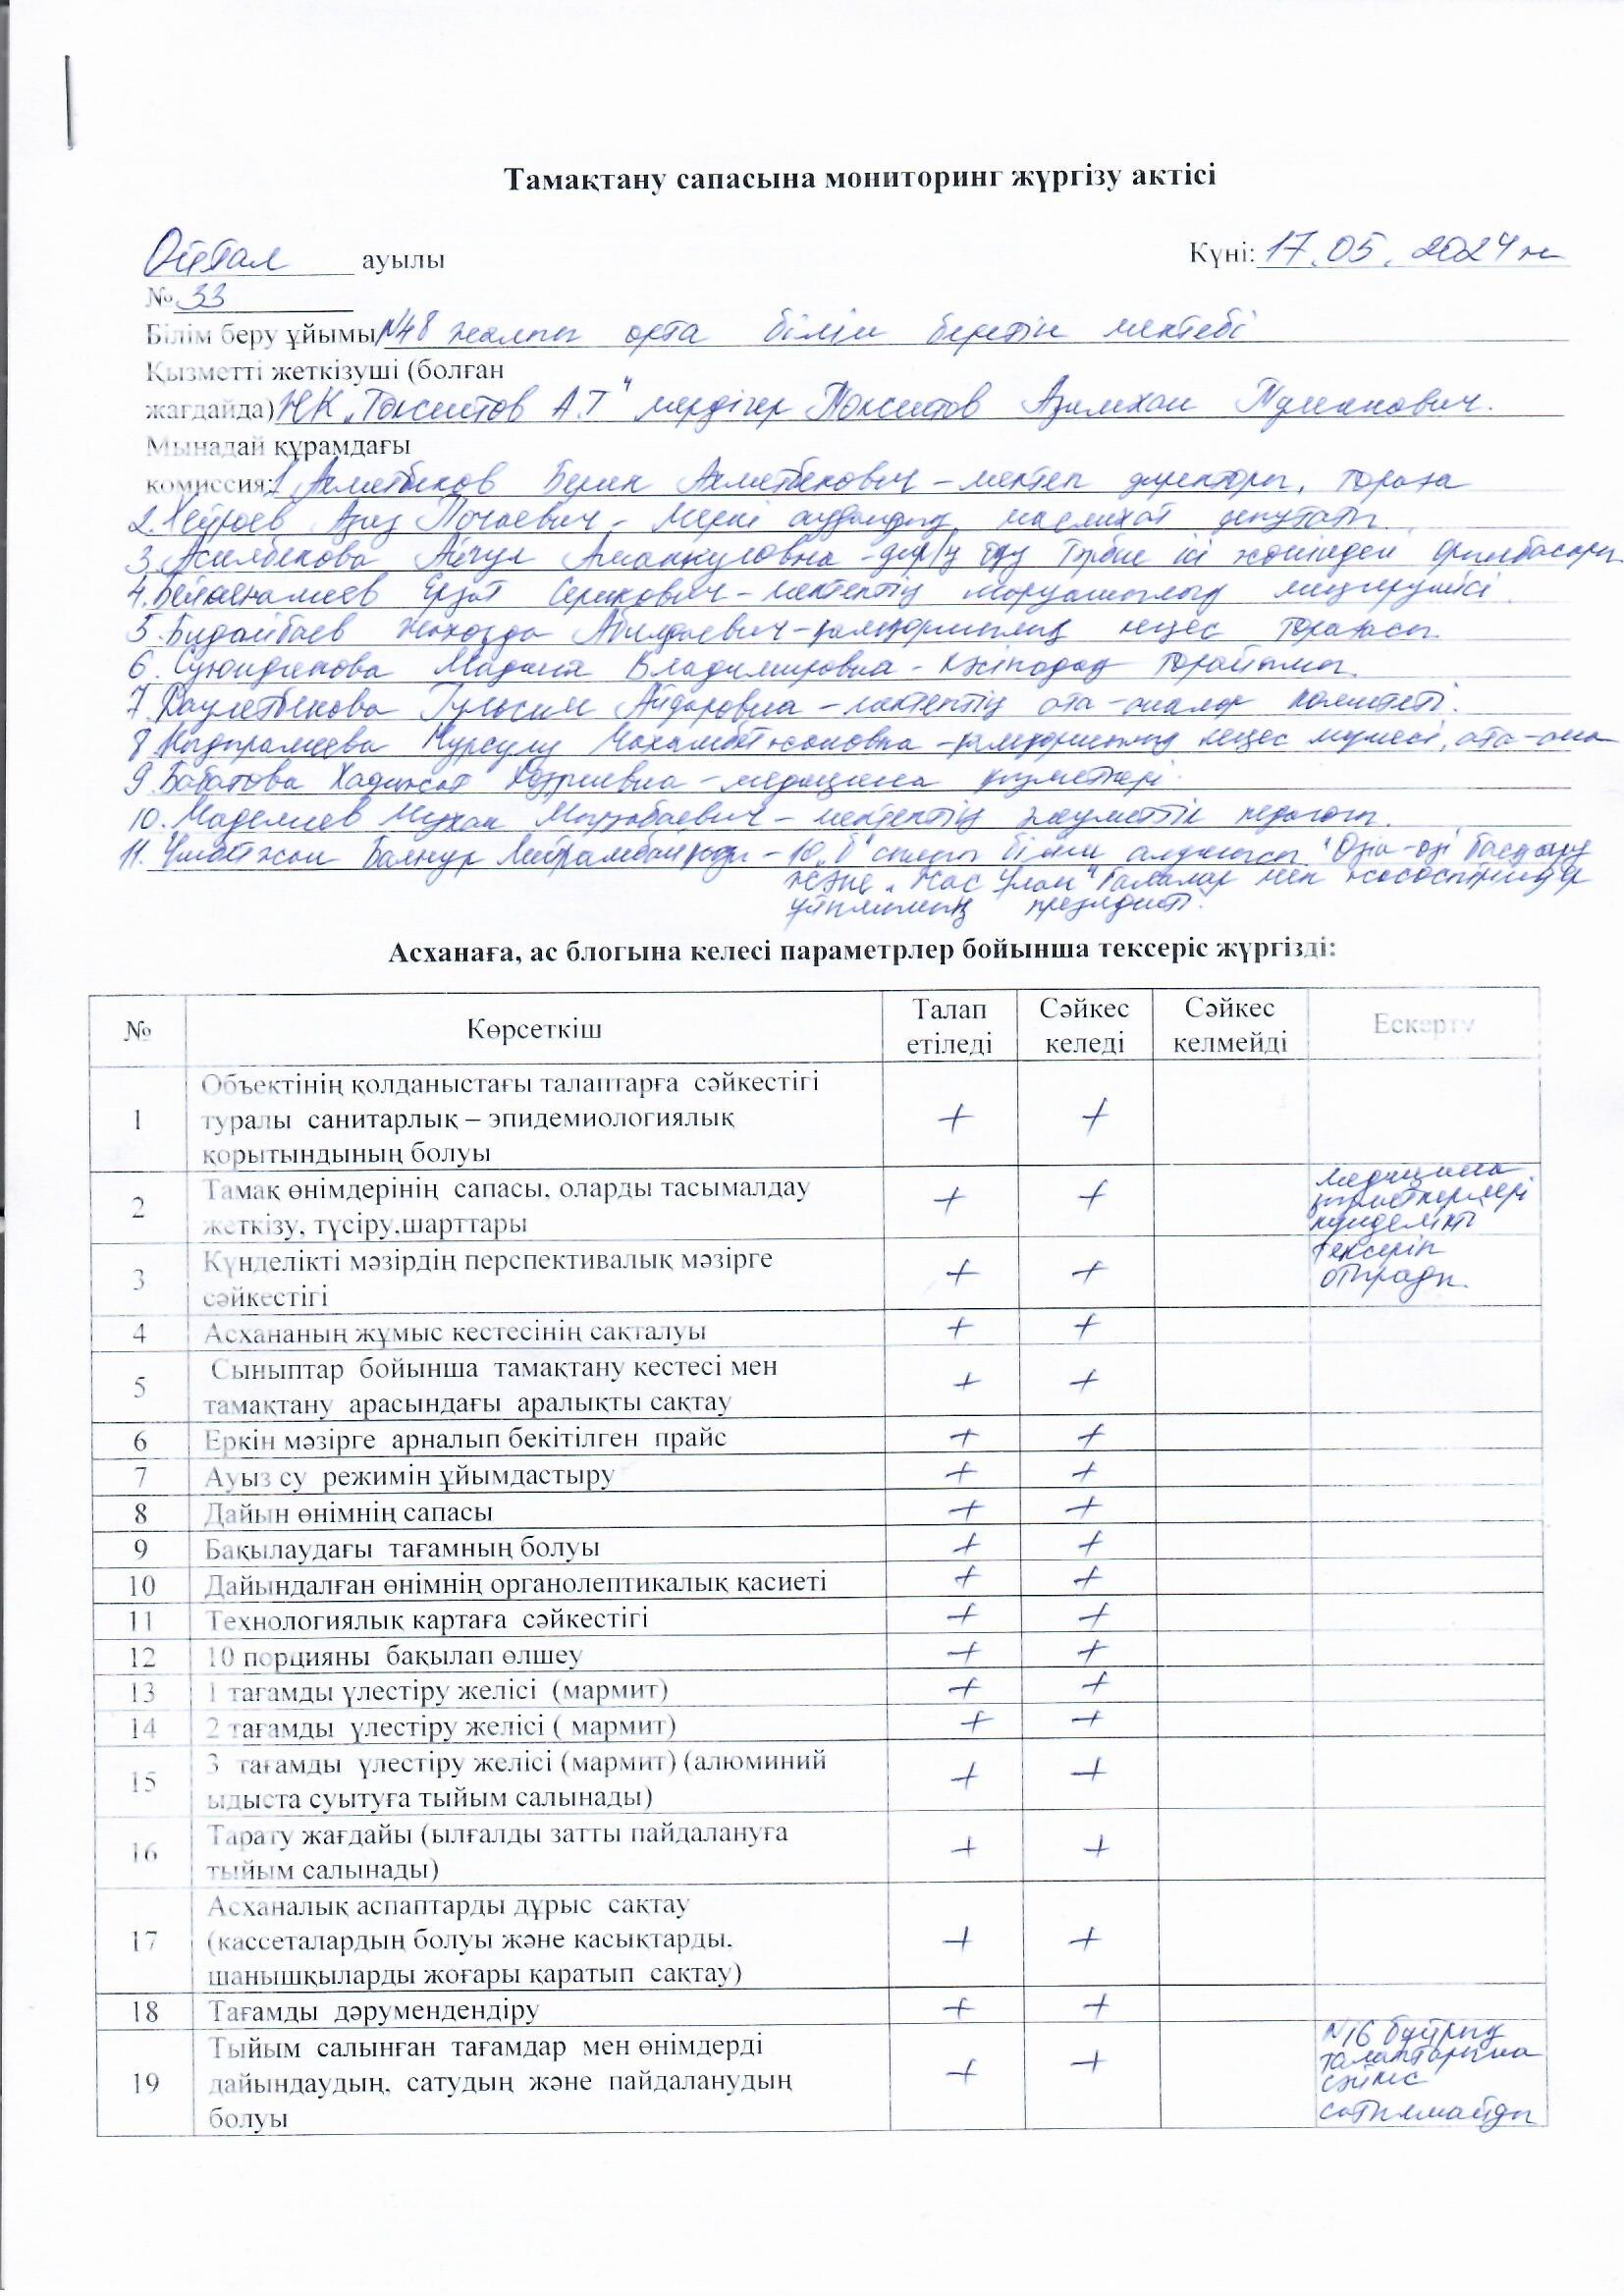 Тамақтану сапасына мониторинг жүргізу актісі
Ойтал ауылы Күні: 17.05.2024 ж
№ 33
Білім беру ұйымы №48 жалпы орта білім беретін мектебі
Қызметті жеткізуші (болған
жағдайда) ЖК "Токситов А.Т" мердігер Токситов Азимхан
Мынадай құрамдағы
комиссия: 1. Ахметбеков Берик Ахметбекович – мектеп директоры, төраға
2. Азиз – Меркі аудандық маслихат депутаты.
3. Асилбекова Айгул Аманкуловна – дир/ң тәрбие ісі жөніндегі орынбасары
4. Ерзат Серикович – мектептің шаруашылық меңгерушісі
5. Бидайбаев Абилдаевич – қамқоршылық кеңес төрағасы.
6. Мадина Владимировна – кәсіподақ төрайымы.
7. Даулетбекова Гульсим Айдаровна – мектептің ата-аналар комитеті.
8. Нурсулу – қамқоршылық кеңес мүшесі, ата-ана
9. Бабатова – медицина қызметкері.
10. Маделиев – мектептің әлеуметтік педагогы.
11. Баянур – 10 "б" сынып білім алушысы "Өзін-өзі басқару
және "Жас Ұлан" балалар мен жасөспірімдер
ұйымының президенті.
Асханаға, ас блогына келесі параметрлер бойынша тексеріс жүргізді:
№ Көрсеткіш Талап етіледі Сәйкес келеді Сәйкес келмейді Ескерту
1 Объектінің қолданыстағы талаптарға сәйкестігі
туралы санитарлық – эпидемиологиялық + +
қорытындының болуы
2 Тамақ өнімдерінің сапасы, оларды тасымалдау + + медицина қызметкерлері
жеткізу, түсіру,шарттары күнделікті
3 Күнделікті мәзірдің перспективалық мәзірге + + тексеріп
сәйкестігі отырады.
4 Асхананың жұмыс кестесінің сақталуы + +
5 Сыныптар бойынша тамақтану кестесі мен + +
тамақтану арасындағы аралықты сақтау
6 Еркін мәзірге арналып бекітілген прайс + +
7 Ауыз су режимін ұйымдастыру + +
8 Дайын өнімнің сапасы + +
9 Бақылаудағы тағамның болуы + +
10 Дайындалған өнімнің органолептикалық қасиеті + +
11 Технологиялық картаға сәйкестігі + +
12 10 порцияны бақылап өлшеу + +
13 1 тағамды үлестіру желісі (мармит) + +
14 2 тағамды үлестіру желісі ( мармит) + +
15 3 тағамды үлестіру желісі (мармит) (алюминий + +
ыдыста суытуға тыйым салынады)
16 Тарату жағдайы (ылғалды затты пайдалануға + +
тыйым салынады)
17 Асханалық аспаптарды дұрыс сақтау
(кассеталардың болуы және қасықтарды, + +
шанышқыларды жоғары қаратып сақтау)
18 Тағамды дәрумендендіру + +
19 Тыйым салынған тағамдар мен өнімдерді №16 бұйрық
дайындаудың, сатудың және пайдаланудың + + талаптарына сәйкес
болуы сатылмайды